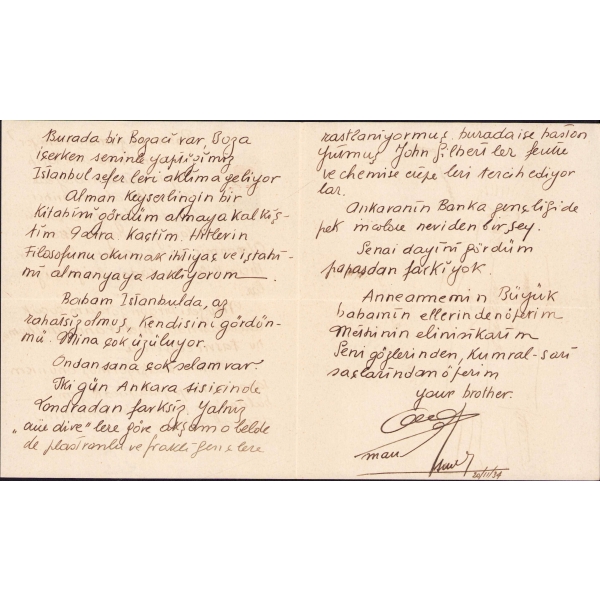 Burada bir Bozacı var. Boza
içerken seninle yaptiğimiz
İstanbul seferleri aklıma geliyor
Alman Keyserlingin bir
Kitabini gördüm almaya kalkış-
tim 9 lira. Kaçtim. Hitlerin
Filosofunu okumak ihtiyaç ve iştahi-
mi almanyaya saklıyorum
Babam İstanbulda, az
rahatsizolmuş, kendisini gördün-
mü. Mina çok üzülüyor.
Ondan sana çok selam var.
İki gün Ankara sis içinde
Londradan farksiz. Yalniz
lere göre akşam o belde
de plastronlu ve fraklı gençlere
rastlaniyormuş, burada ise baston
yürmuş John Gilbert ler feutre
ve chemise crêpe leri tercih ediyor
lar.
Ankaranin Banka gençliği de
pek malum neviden bir şey.
Senai dayini gördüm
papasdan farkı yok.
Anneannemin Büyük
babamin ellerinden öperim
Melihinin elini sikarim
Seni gözlerinden, kumral-sari
saçlarindan öperim
your brother.
20/11/34